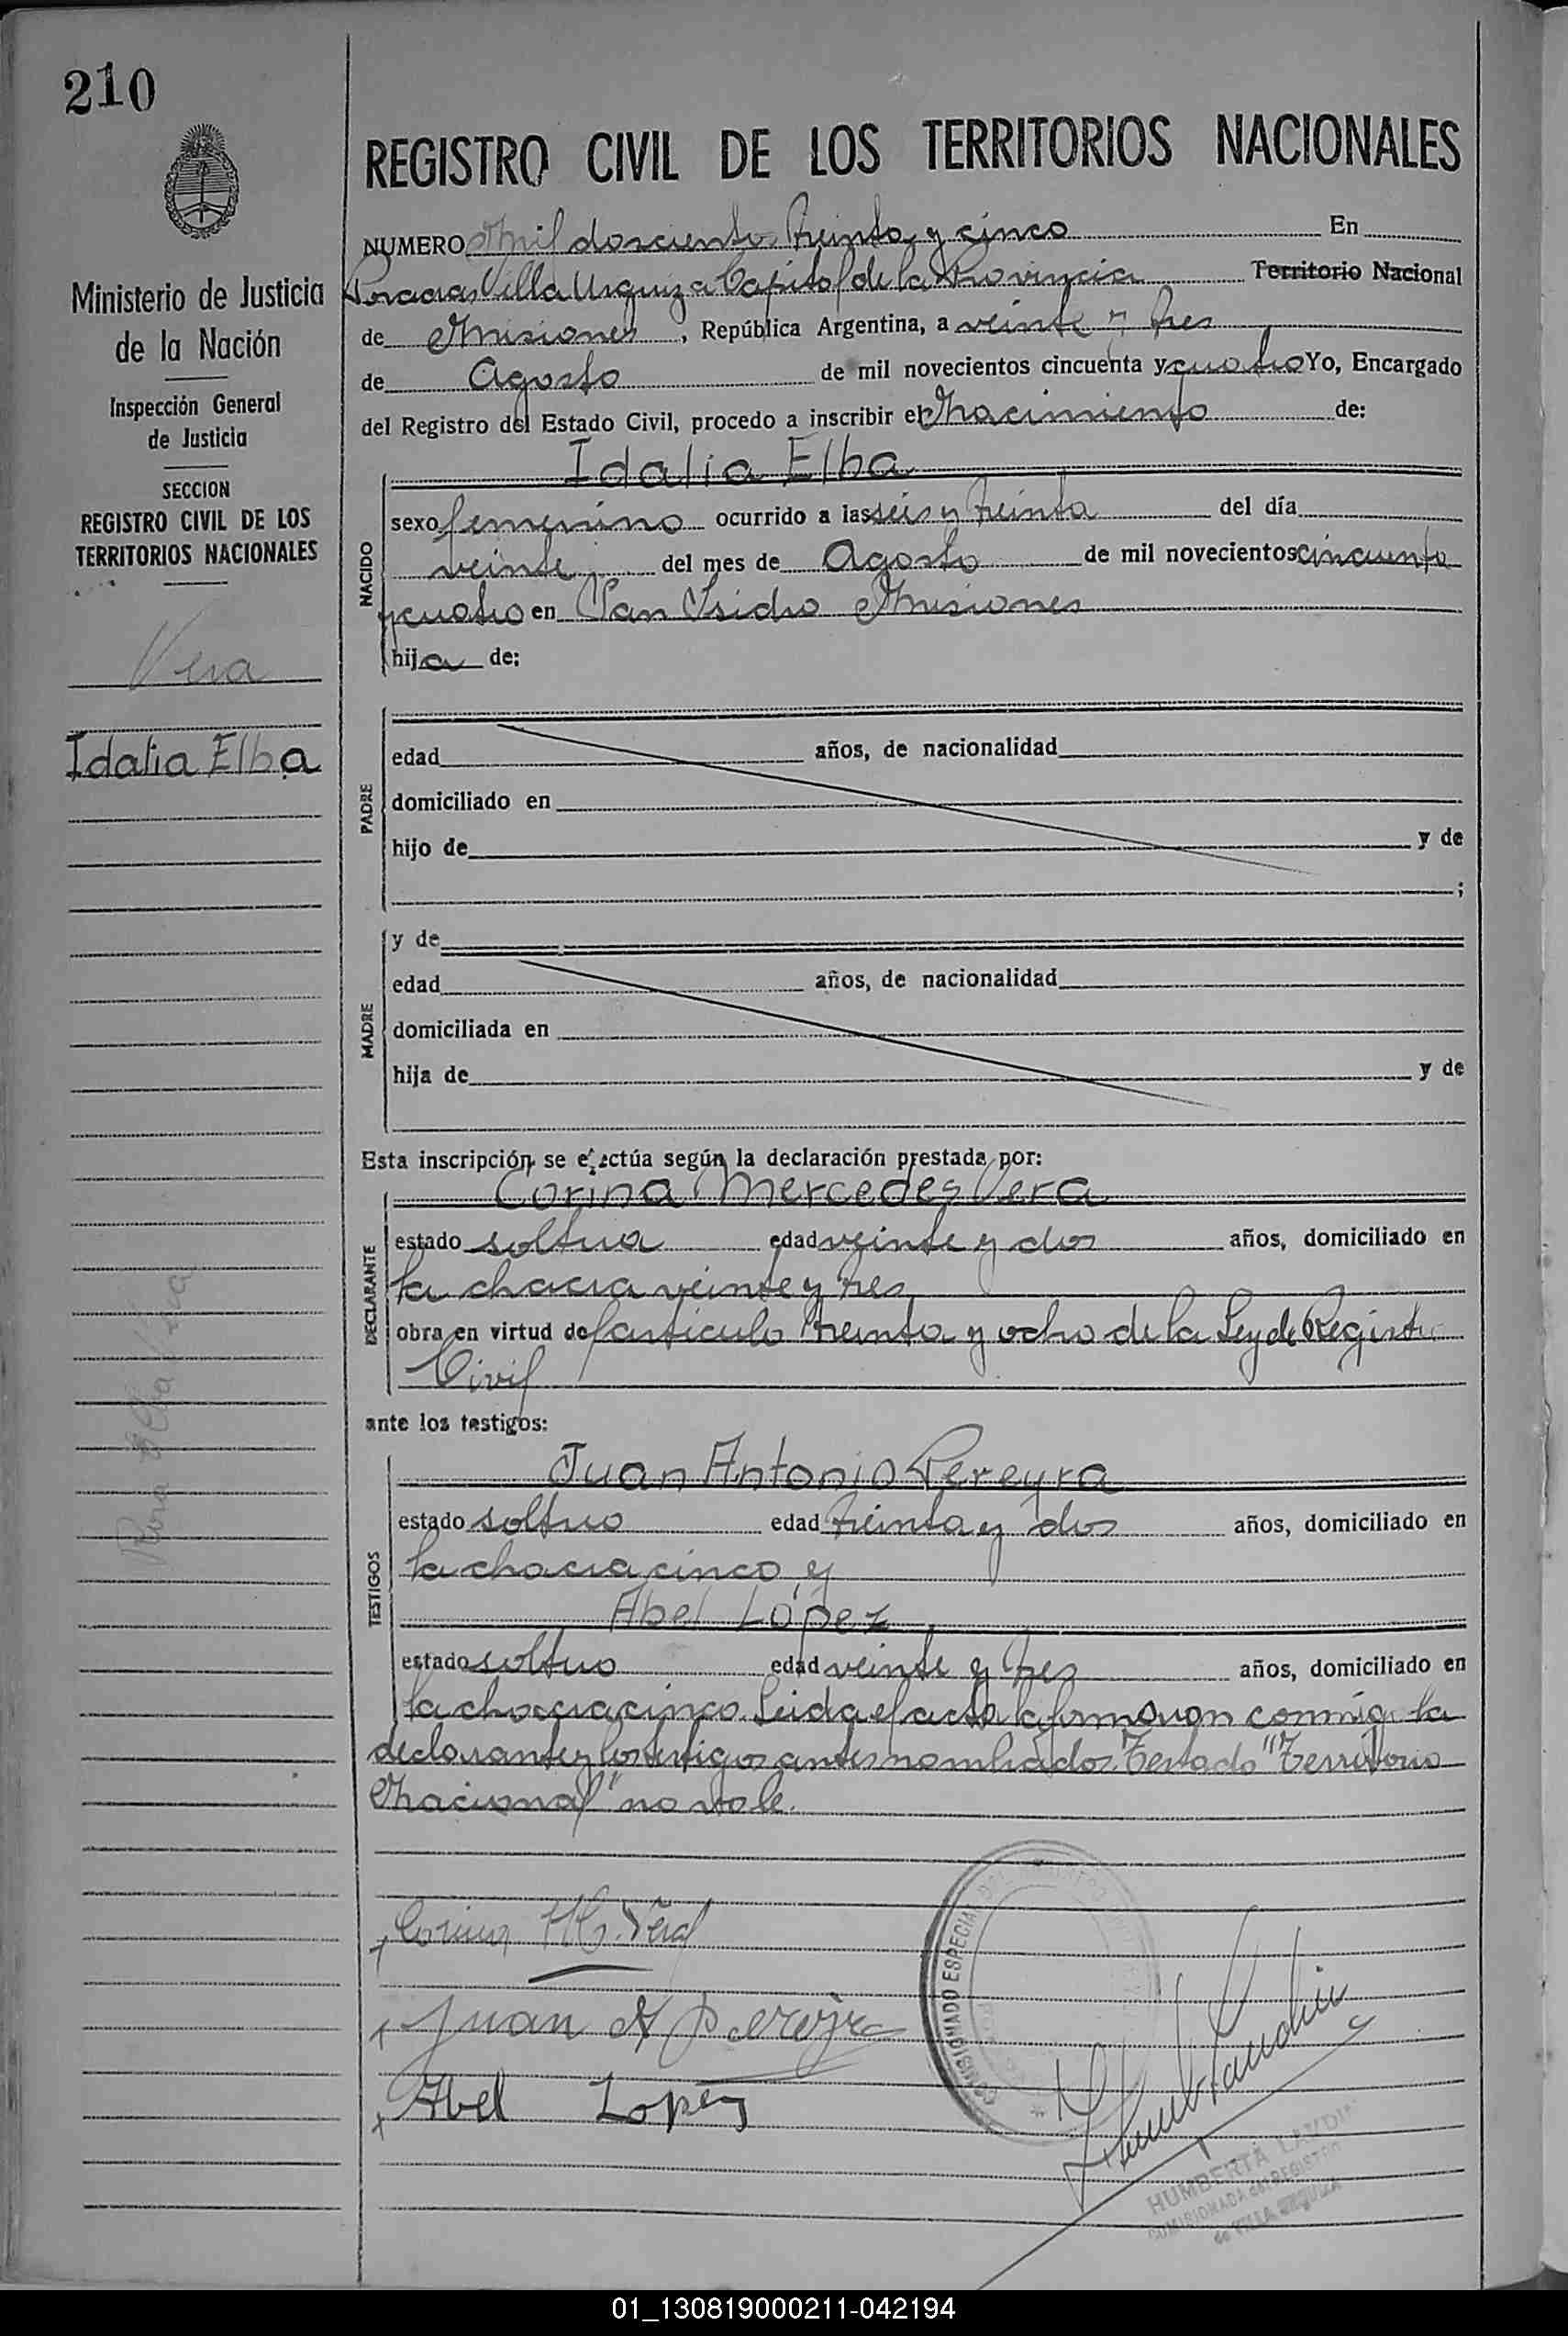 210
REGISTRO CIVIL DE LOS TERRITORIOS NACIONALES
Ministerio de Justicia
de la Nación
Inspección General
de Justicia
SECCION
REGISTRO CIVIL DE LOS
TERRITORIOS NACIONALES
Vera
Idalia Elba
NUMERO Mil doscientos treinta y cinco En
Posadas Villa Urquiza Capital de la Provincia Territorio Nacional
de Misiones, República Argentina, a veinte y tres
de Agosto de mil novecientos cincuenta y cuatro Yo, Encargado
del Registro del Estado Civil, procedo a inscribir el Nacimiento de:
Idalia Elba
NACIDO
sexo femenino ocurrido a las seis y treinta del día
veinte del mes de Agosto de mil novecientos cincuenta
y cuatro en San Isidro Misiones
hija de:
PADRE
edad años, de nacionalidad
domiciliado en
hijo de y de
;
MADRE
y de
edad años, de nacionalidad
domiciliada en
hija de y de
Esta inscripción se efectúa según la declaración prestada por:
Corina Mercedes Vera
DECLARANTE
estado soltera edad veinte y dos años, domiciliado en
la chacra veinte y tres
obra en virtud del artículo treinta y ocho de la Ley de Registro
Civil
ante los testigos:
Juan Antonio Pereyra
TESTIGOS
estado soltero edad treinta y dos años, domiciliado en
la chacra cinco y
Abel López
estado soltero edad veinte y tres años, domiciliado en
la chacra cinco. Leida el acta la firmaron conmigo la
declarante y los testigos antes nombrados. Testado "Territorio
Nacional" no vale.
Corina M. Vera
Juan A Pereyra
Abel Lopez
COMISIONADO ESPECIAL DEL
HUMBERTA
COMISIONADA del REGISTRO
de VILLA URQUIZA
01_130819000211-042194